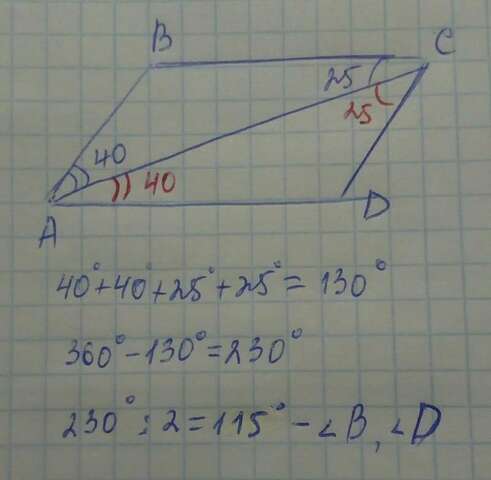 B
C
25
25
40
40
A
D
40°+40°+25°+25°= 130°
360°-130°=230°
230° : 2 = 115° - ∠B, ∠D